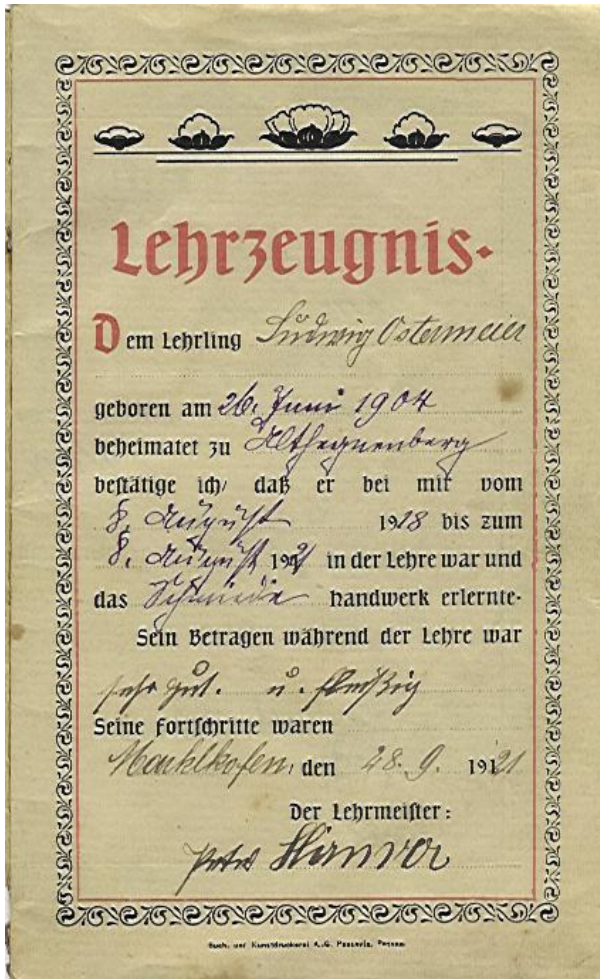 Lehrzeugnis.
Dem Lehrling Ludwig Ostermeier
geboren am 26. Juni 1904
beheimatet zu Althegnenberg
bestätige ich, daß er bei mir vom
8. August 1918 bis zum
8. August 1921 in der Lehre war und
das Schmiede handwerk erlernte.
Sein Betragen während der Lehre war
sehr gut. u. fleißig
Seine Fortschritte waren
Marklkofen, den 28. 9. 1921
Der Lehrmeister:
Peter
Buch- und Kunstdruckerei A.-G. Passavia, Passau